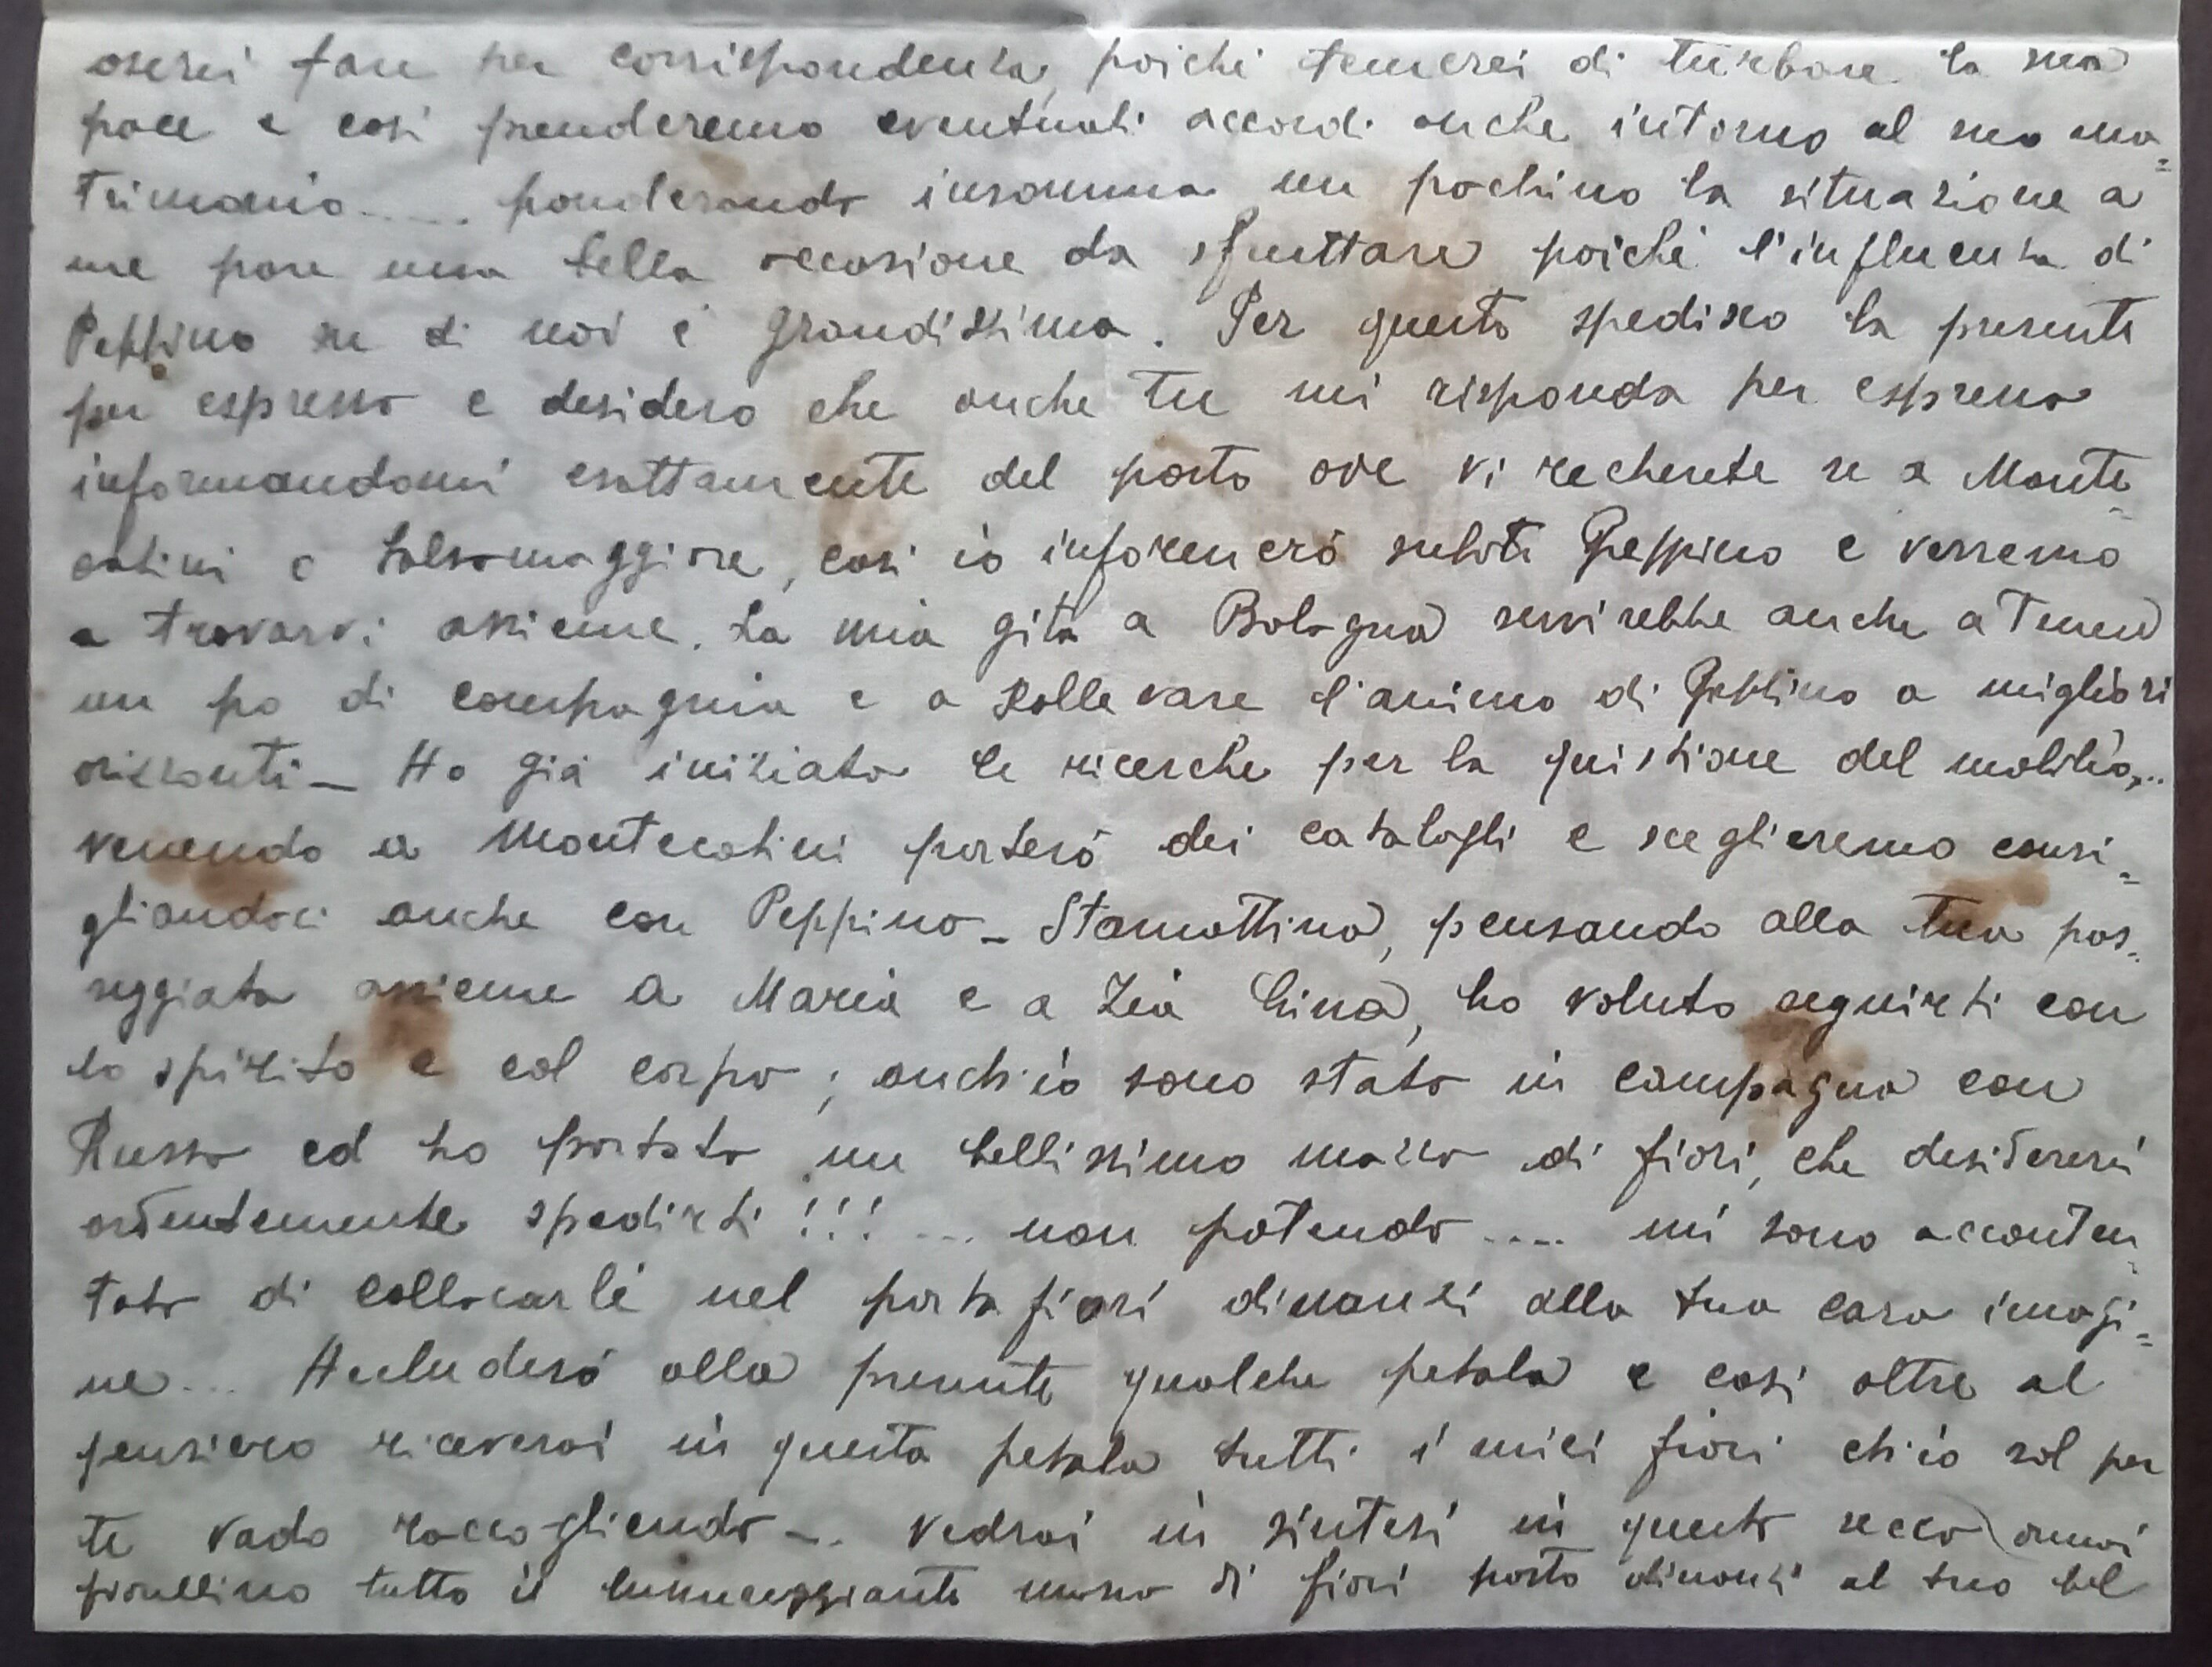 oserei fare per corrispondenza, poichè temerei di turbare la sua
pace e così prenderemo eventuali accordi anche intorno al suo ma=
trimonio..... ponderando insomma un pochino la situazione a
me pare una bella occasione da sfruttare poichè l'influenza di
Peppino su di noi è grandissima. Per questo spedisco la presente
per espresso e desidero che anche tu mi risponda per espresso
informandomi esattamente del posto ove vi recherete se a Monte=
catini o Salsomaggiore, così io informerò subito Peppino e verremo
a trovarvi assieme. La mia gita a Bologna servirebbe anche a tener
un po di compagnia e a sollevare l'animo di Peppino a migliori
orizzonti - Ho già iniziato le ricerche per la quistione del mobilio,...
venendo a Montecatini porterò dei cataloghi e sceglieremo consi=
gliandoci anche con Peppino - Stamattina, pensando alla tua pas=
seggiata assieme a Maria e a Zia Lina, ho voluto seguirti con
lo spirito e col corpo; anch'io sono stato in campagna con
Russo ed ho portato un bellissimo mazzo di fiori, che desidererei
ardentemente spedirti!!! ... non potendo .... mi sono acconten=
tato di collocarli nel portafiori dinanzi alla tua cara imagi=
ne... Accluderò alla presente qualche petalo e così oltre al
pensiero riceverai in questo petalo tutti i miei fiori ch'io sol per
te vado raccogliendo -. Vedrai in sintesi in questo secco ormai
fiorellino tutto il lussureggiante mazzo di fiori posto dinanzi al tuo bel